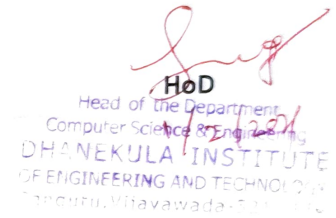 HoD
Head of the Department
Computer Science & Engineering
DHANEKULA INSTITUTE
OF ENGINEERING AND TECHNOLOGY
Ganguru, Vijayawada-